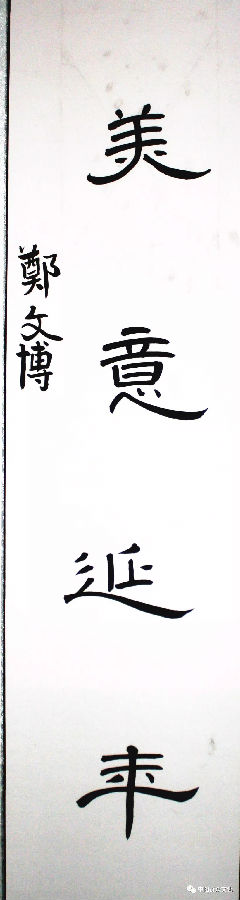 美意延年
鄭文博